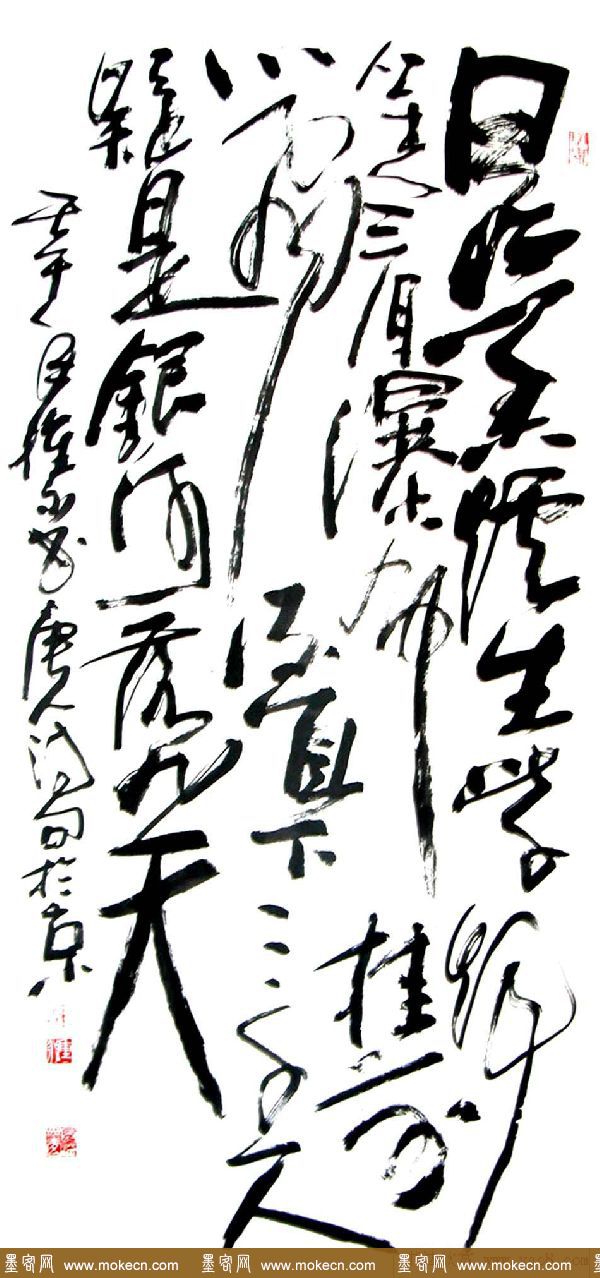 日照香爐生紫烟
遥看瀑布挂前
川飛流直下三千尺
疑是銀河落九天
书唐人詩句於京
墨客网 www.mokecn.com 墨客网 www.mokecn.com 墨客网 www.mokecn.com